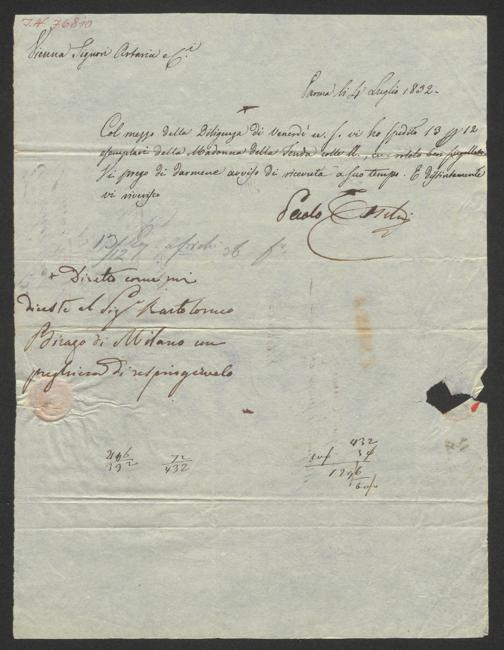 I.N. 76810
Vienna Signori Artaria e C.i
Parma li 4 Luglio 1832.
Col mezzo della Diligenza di Venerdì vi ho spedito 13 pp 12
esemplari della Madonna della Tenda colle ben suggellato
Vi prego di darmene avviso di ricevuta a suo tempo. E distintamente
vi riverisco
Paolo Toschi
13/12 36 f
+ Diretto come mi
diceste al Sig.r Bartolomeo
Birago di Milano con
preghiera di respingervelo
432
72
432
1296